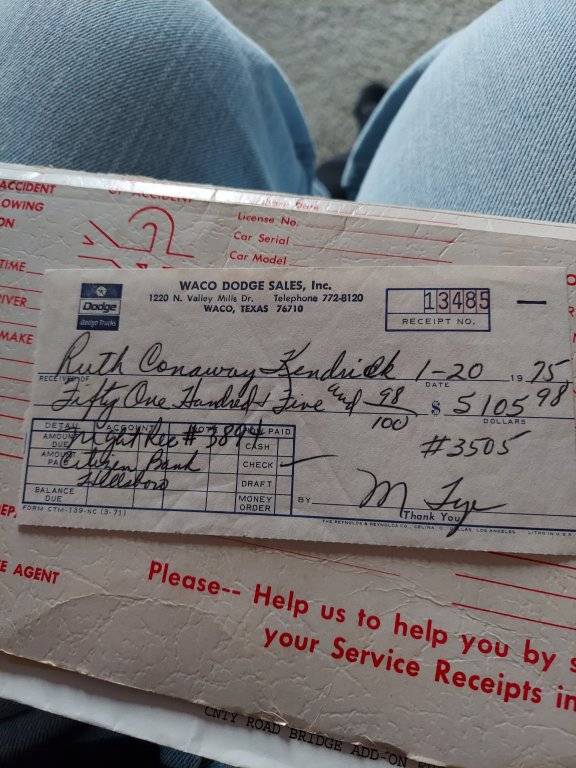 ACCIDENT
OWING
ON
License No.
Car Serial
Car Model
TIME
IVER
MAKE
Dodge
Dodge Trucks
WACO DODGE SALES, Inc.
1220 N. Valley Mills Dr. Telephone 772-8120
WACO, TEXAS 76710
13485
RECEIPT NO.
Ruth Conaway Kendrick 1-20 1975
RECEIVED OF DATE
Fifty One Hundred & Five and 98/100 $ 5105 98
DOLLARS
DETAIL ACCOUNT NOTE HOW PAID
AMOUNT DUE CASH
#3505
AMOUNT PAID Citizen Bank CHECK
Hillsboro DRAFT
BALANCE DUE MONEY ORDER
BY M Tye
Thank You
FORM CTM-139-NC (3-71)
THE REYNOLDS & REYNOLDS CO., CELINA, O., DALLAS, LOS ANGELES LITHO IN U.S.A.
REP.
E AGENT
Please-- Help us to help you by s
your Service Receipts in
CNTY ROAD BRIDGE ADD-ON